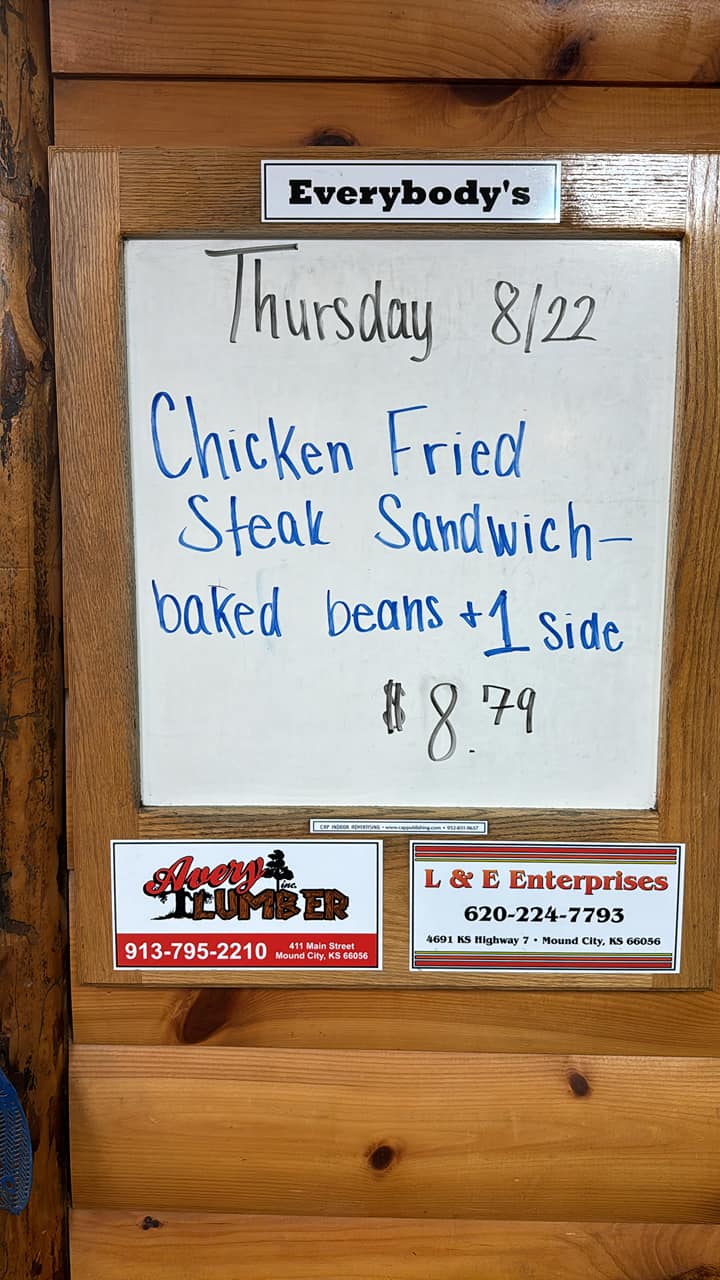 Everybody's
Thursday 8/22
Chicken Fried
Steak Sandwich-
baked beans + 1 side
$8.79
CAP INDOOR ADVERTISING • www.cappublishing.com •
Avery
LUMBER inc.
913-795-2210
411 Main Street
Mound City, KS 66056
L & E Enterprises
620-224-7793
4691 KS Highway 7 • Mound City, KS 66056